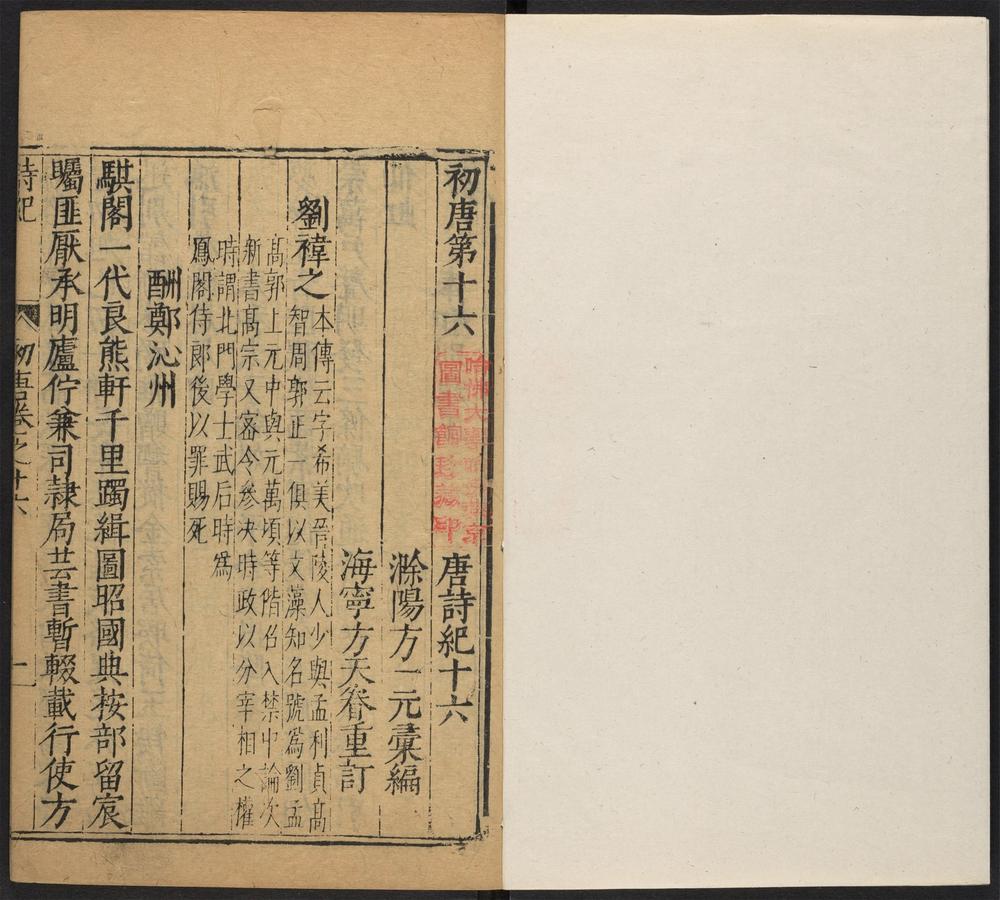 初唐第十六　唐詩紀十六
滁陽方一元彚編
海寧方天眷重訂
劉禕之
本傳云字希美晉陵人少與孟利貞高
智周郭正一俱以文藻知名號爲劉孟
高郭上元中與元萬頃等偕召入禁中論次
新書高宗又密令參决時政以分宰相之權
時謂北門學士武后時爲
鳳閣侍郎後以罪賜死
酬鄭沁州
騏閣一代良熊軒千里躅緝圖昭國典按部留宸
矚匪厭承明廬佇兼司隷局芸書暫輟載行使方
詩紀
初唐卷之十六
一
哈佛大學
圖書館珍藏印